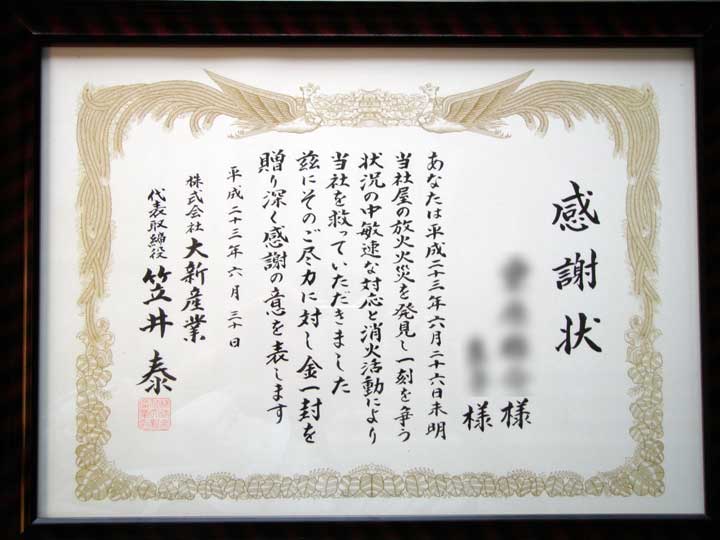 感謝状
様
様
あなたは平成二十三年六月二十六日未明
当社屋の放火火災を発見し一刻を争う
状況の中敏速な対応と消火活動により
当社を救っていただきました
茲にそのご尽力に対し金一封を
贈り深く感謝の意を表します
平成二十三年六月三十日
株式会社大新産業
代表取締役 笠井泰